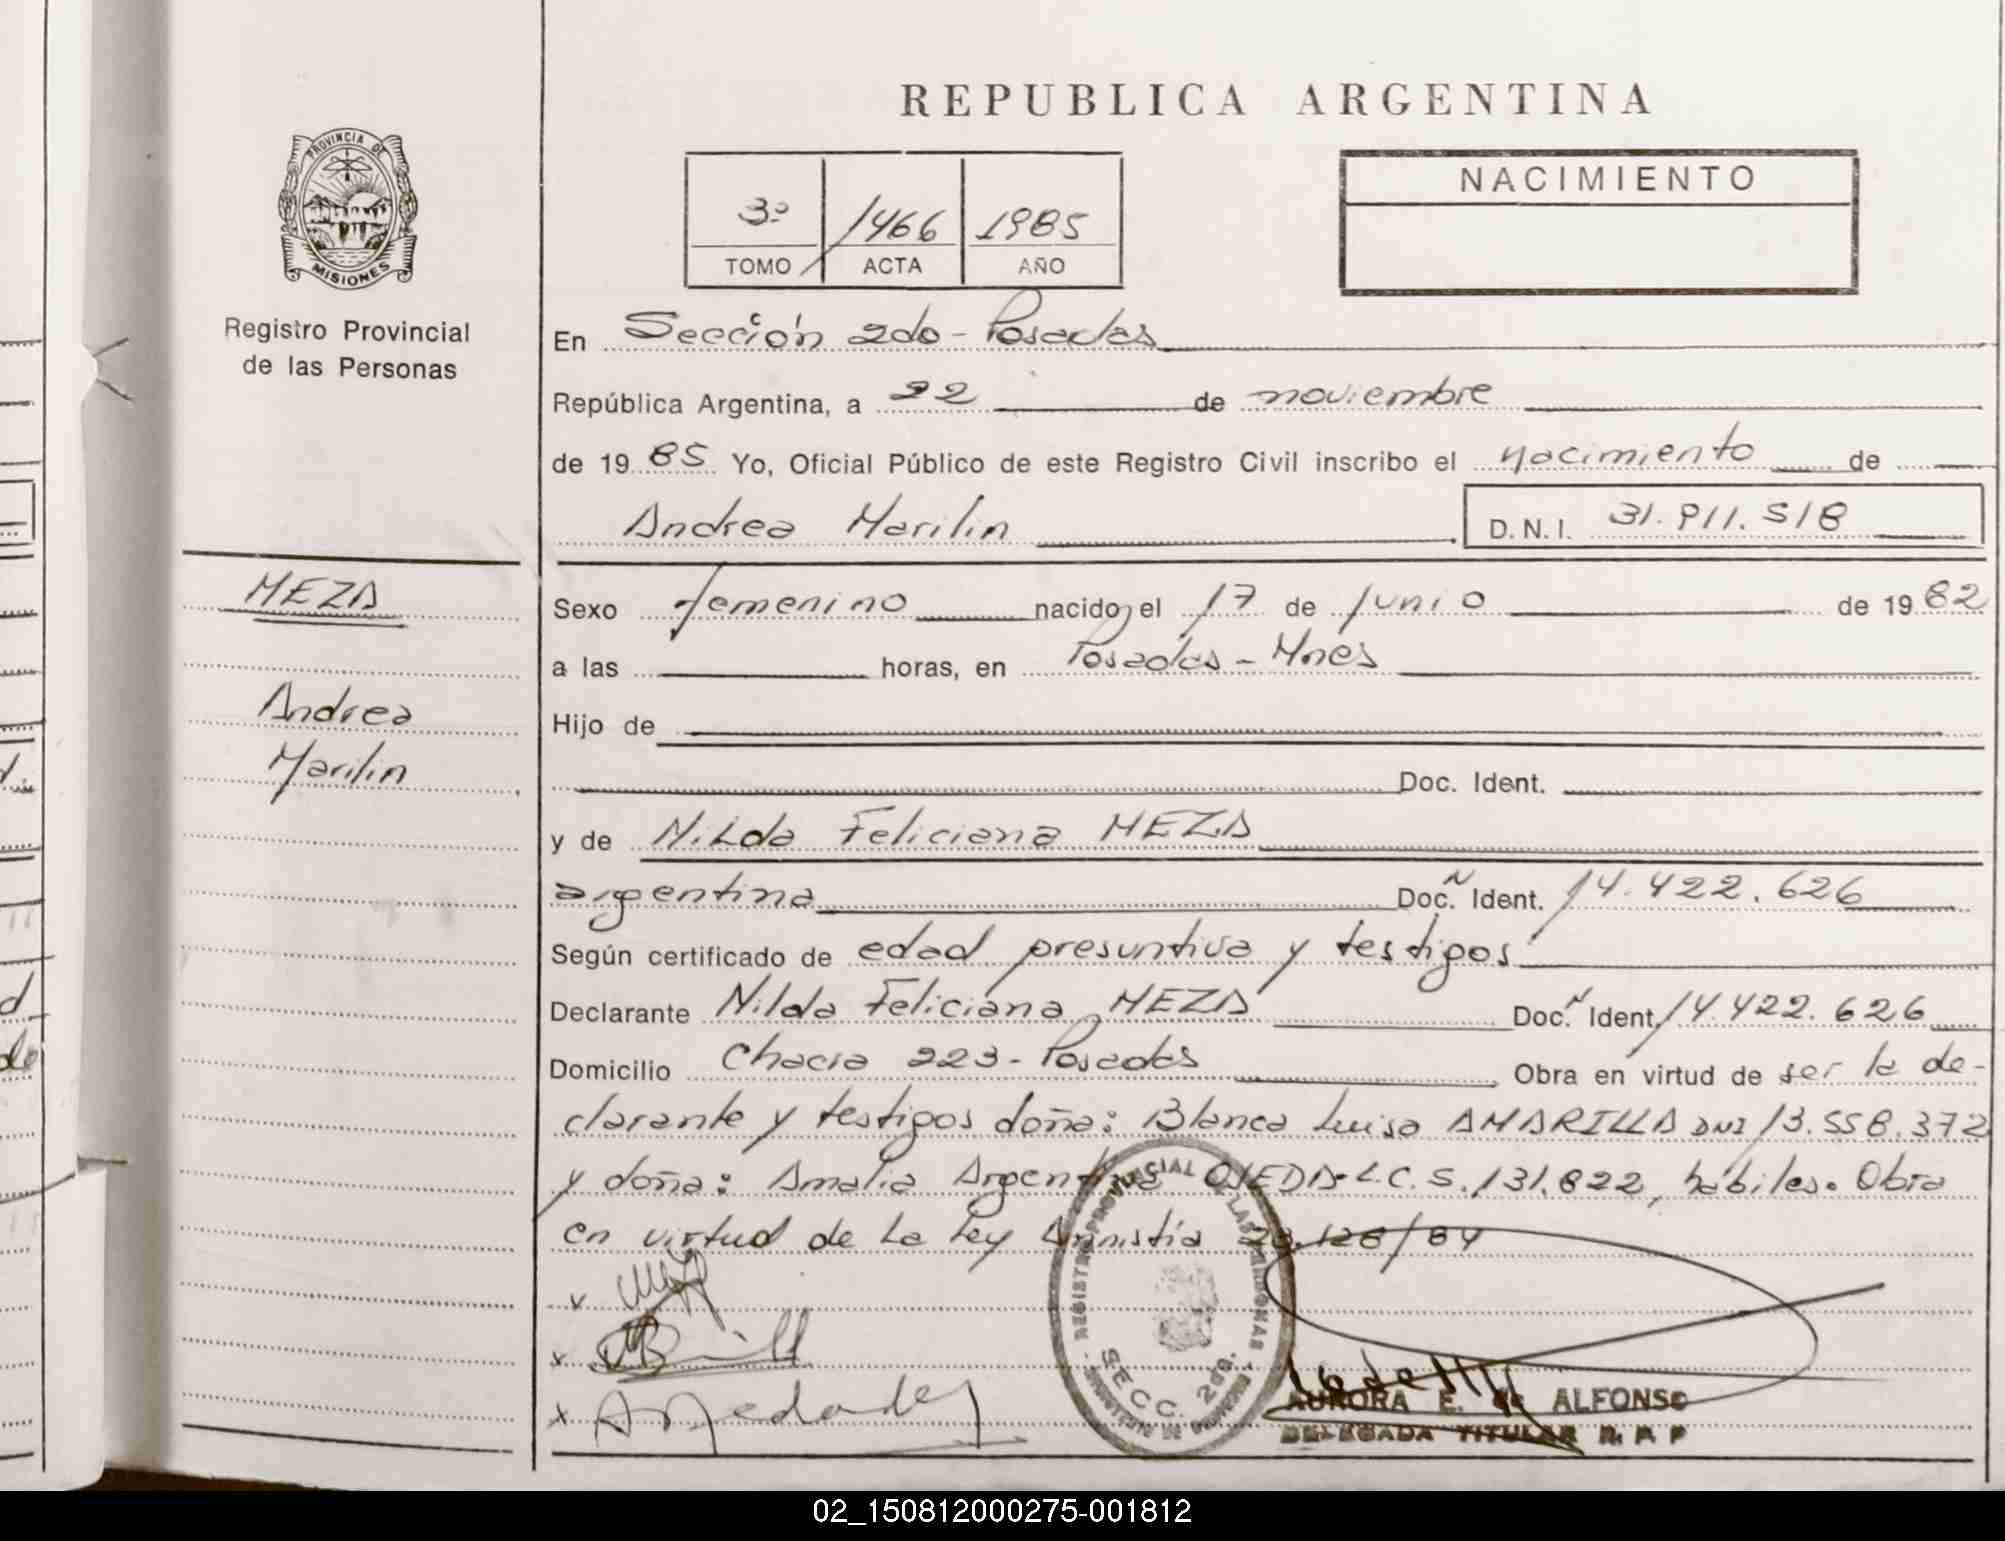 REPUBLICA ARGENTINA
PROVINCIA DE
MISIONES
Registro Provincial
de las Personas
3º 1466 1985
TOMO ACTA AÑO
NACIMIENTO
En Sección 2do - Posadas
República Argentina, a 22 de noviembre
de 1985 Yo, Oficial Público de este Registro Civil inscribo el nacimiento de
Andrea Marilin D.N.I. 31.911.518
MEZA
Andrea
Marilin
Sexo femenino nacido el 17 de junio de 1982
a las horas, en Posadas - Mnes
Hijo de
Doc. Ident.
y de Nilda Feliciana MEZA
argentina Doc. Ident. 14.422.626
Según certificado de edad presuntiva y testigos
Declarante Nilda Feliciana MEZA Doc. Ident. 14.422.626
Domicilio Chacra 223 - Posadas Obra en virtud de ser la de-
clarante y testigos doña: Blanca Luisa AMARILLA DNI 13.558.372
y doña: Amalia Argentina OJEDA - L.C. 5.131.822, hábiles. Obra
en virtud de la Ley Amnistía 23.128/84
x
x
x
REGISTRO PROVINCIAL DE LAS PERSONAS
SECC. 2da.
AURORA E. de ALFONSO
DELEGADA TITULAR R. P. P
02_150812000275-001812